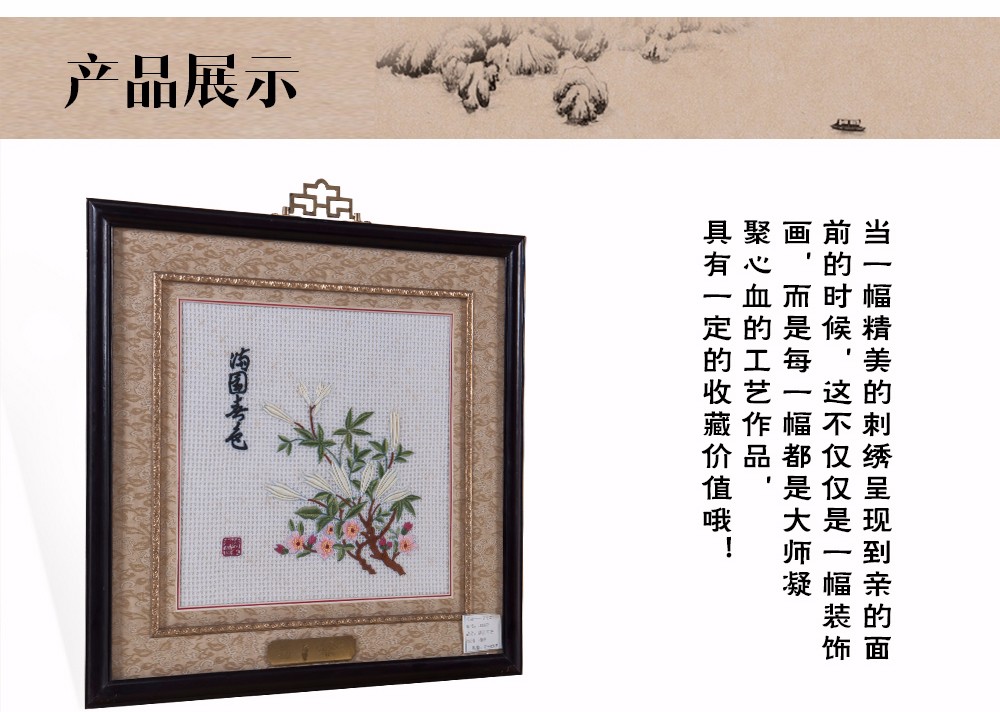 产品展示
当一幅精美的刺绣呈现到亲的面
前的时候，这不仅仅是一幅装饰
画，而是每一幅都是大师凝
聚心血的工艺作品，
具有一定的收藏价值哦！
满园春色